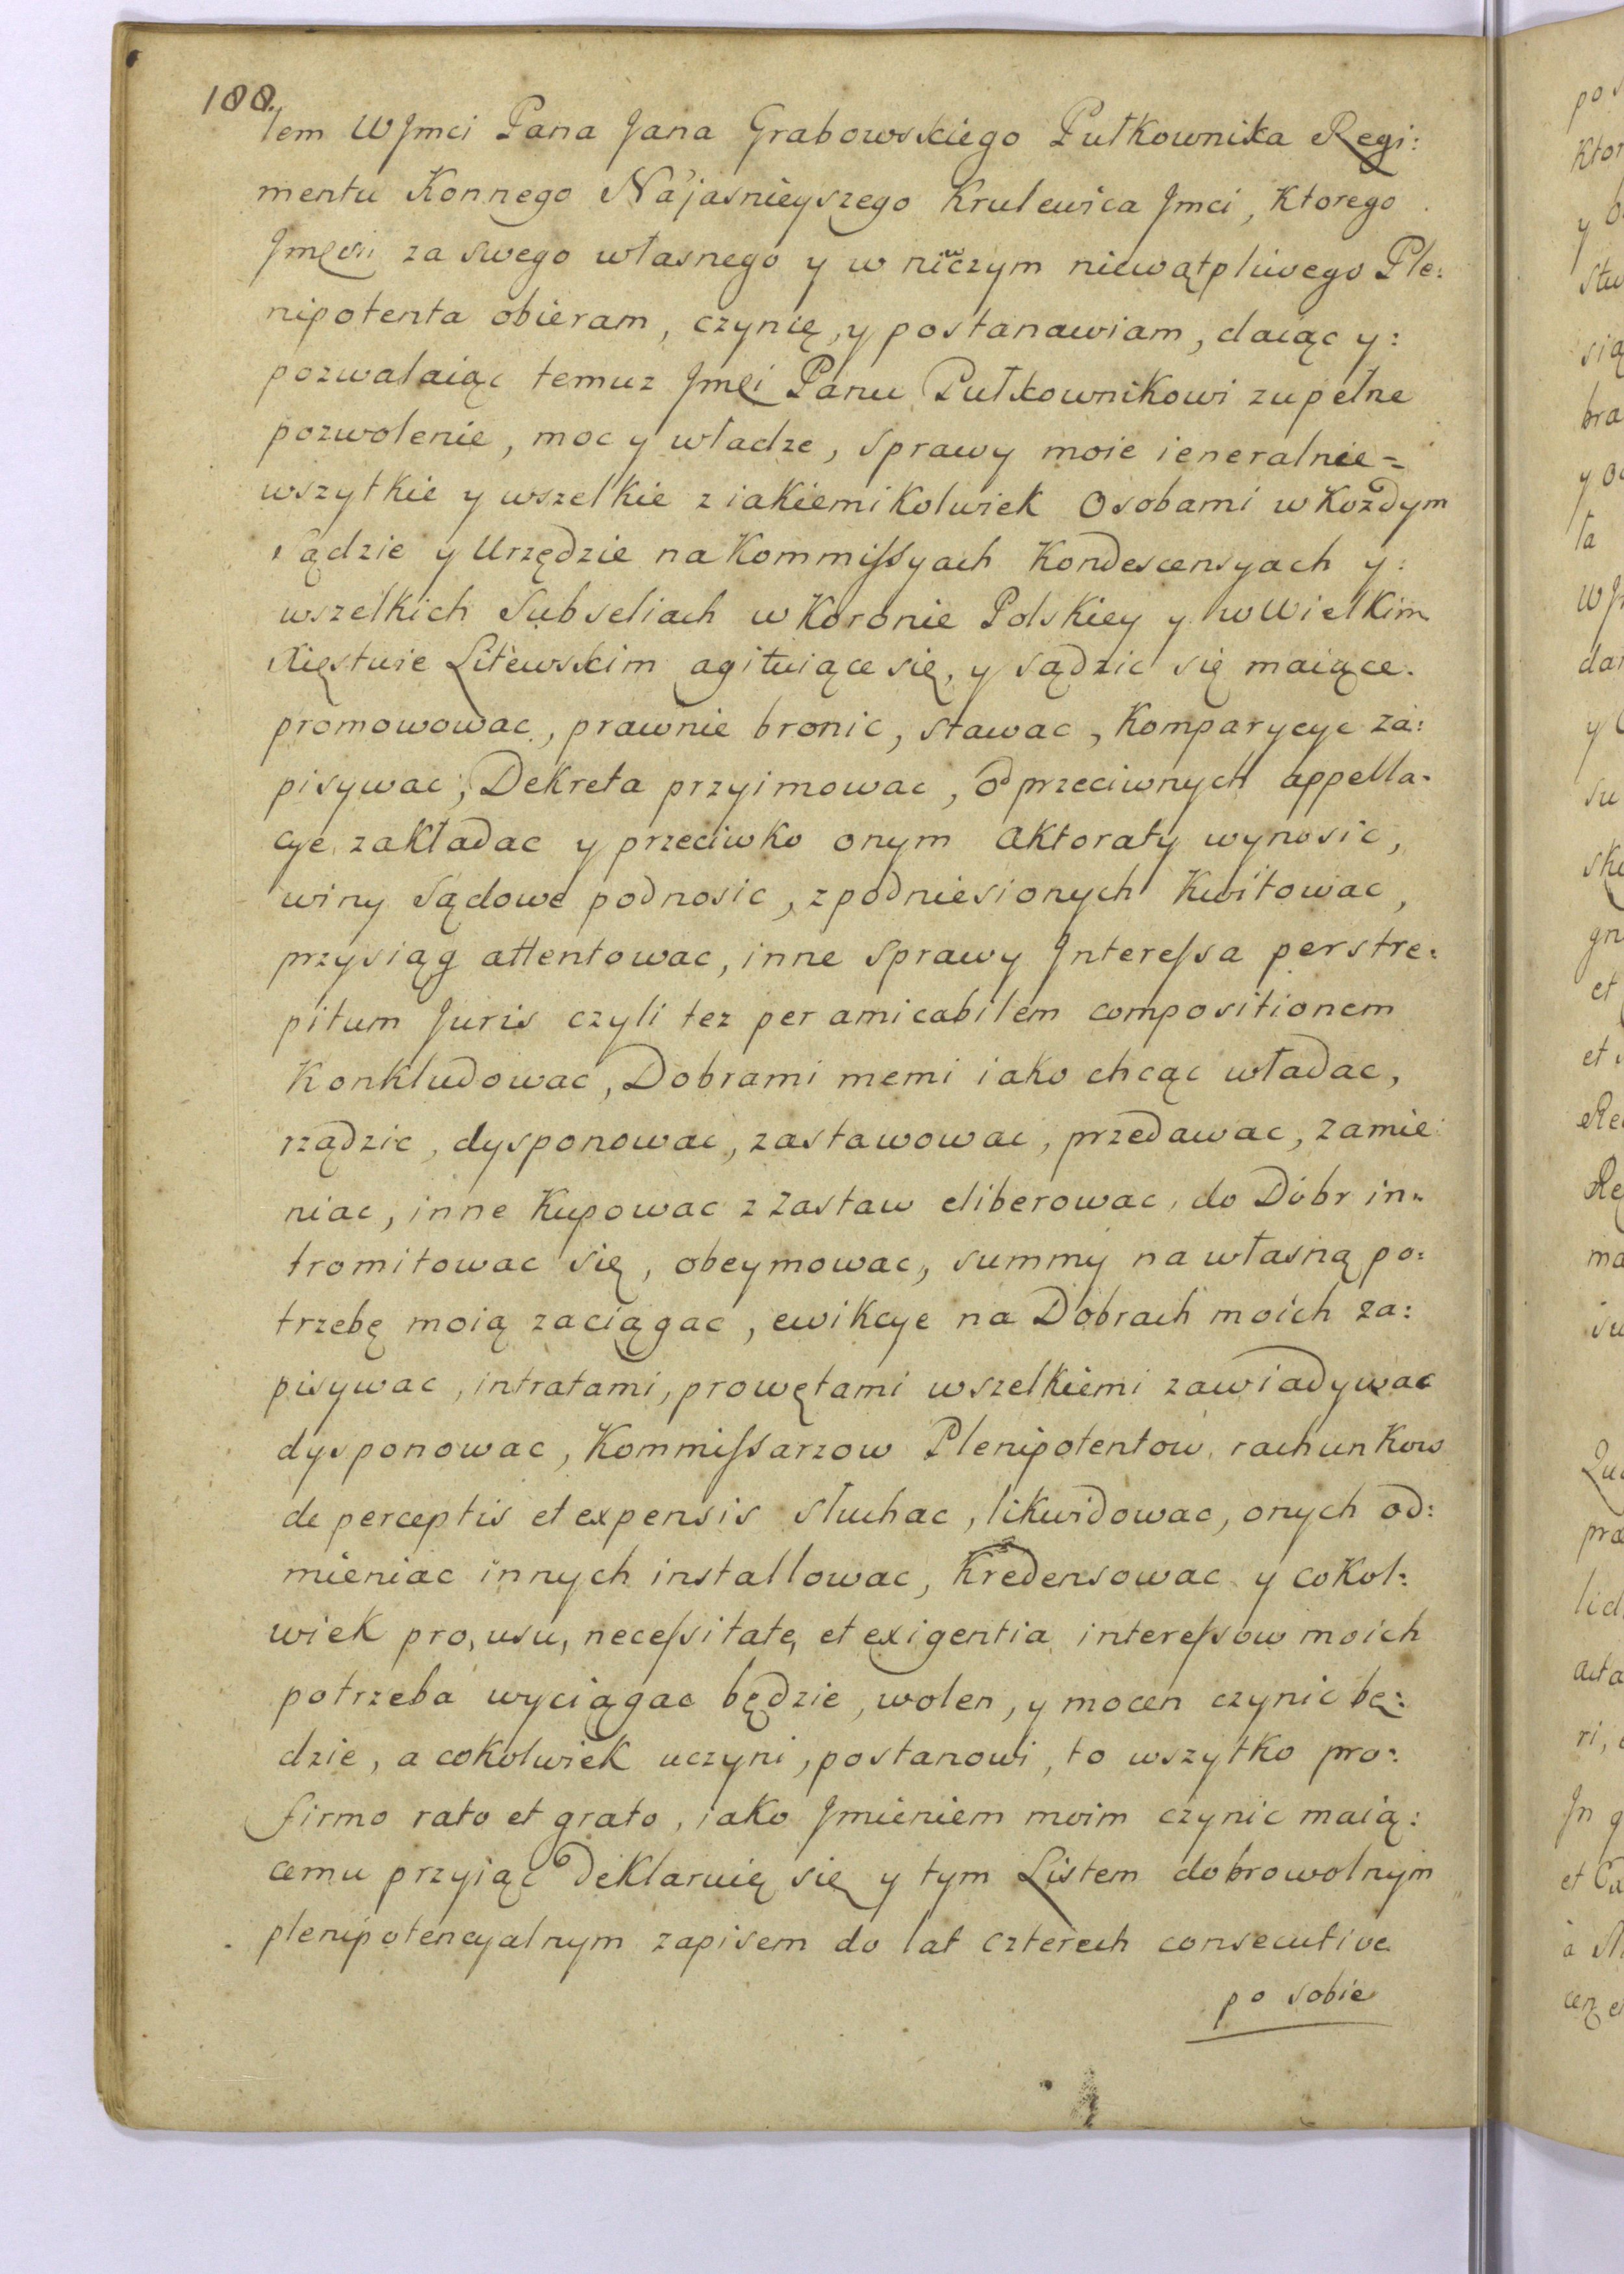 100.
tem WJmci Pana Jana Grabowskiego Pułkownika Regi:
mentu Konnego Najasnieyszego Krulewica Jmci, Ktorego
Jmęsci za swego własnego y w niwczym niewątpliwego Ple:
nipotenta obieram, czynię, y postanawiam, daiąc y:
pozwalaiąc temuz Jmci Panu Pułkownikowi zupełne
pozwolenie, moc y władze, sprawy moie ieneralnie=
wszytkie y wszelkie z iakiemikolwiek Osobami w Kozdym
sądzie y Urzędzie na Kommiſsyach Kondescensyach y:
wszelkich Subseliach w Koronie Polskiey y w Wielkim
Xięstwie Litewskim agituiące się, y sądzic się maiące.
promowowac, prawnie bronic, stawac, Komparycye za:
pisywac, Dekreta przyimowac, od przeciwnych appella:
cye zakładac y przeciwko onym aktoraty wynosic,
winy sądowe podnosic, z podniesionych Kwitowac,
przysiąg attentowac, inne sprawy Jntereſsa per stre:
pitum Juris czyli tez per amicabilem compositionem
Konkludowac, Dobrami memi iako chcąc władac,
rządzic, dysponowac, zastawowac, przedawac, zamie
niac, inne Kupowac z zastaw eliberowac, do Dobr in:
tromitowac się, obeymowac, summy na własną po:
trzebę moią zaciągac, ewikcye na Dobrach moich za:
pisywac, intratami, prowętami wszelkiemi zawiadywac
dysponowac, Kommiſsarzow Plenipotentow, rachunkow
de perceptis et expensis słuchac, likwidowac, onych od:
mieniac innych installowac, Kredensowac y cokol:
wiek pro, usu, neceſsitate, et exigentia intereſsow moich
potrzeba wyciągac będzie, wolen, y mocen czynic bę:
dzie, a cokolwiek uczyni, postanowi, to wszytko pro:
firmo rato et grato, iako Jmieniem moim czynic maią:
cemu przyiąc deklaruię się y tym Listem dobrowolnym
plenipotencyalnym zapisem do lat czterech consecutive
po sobie